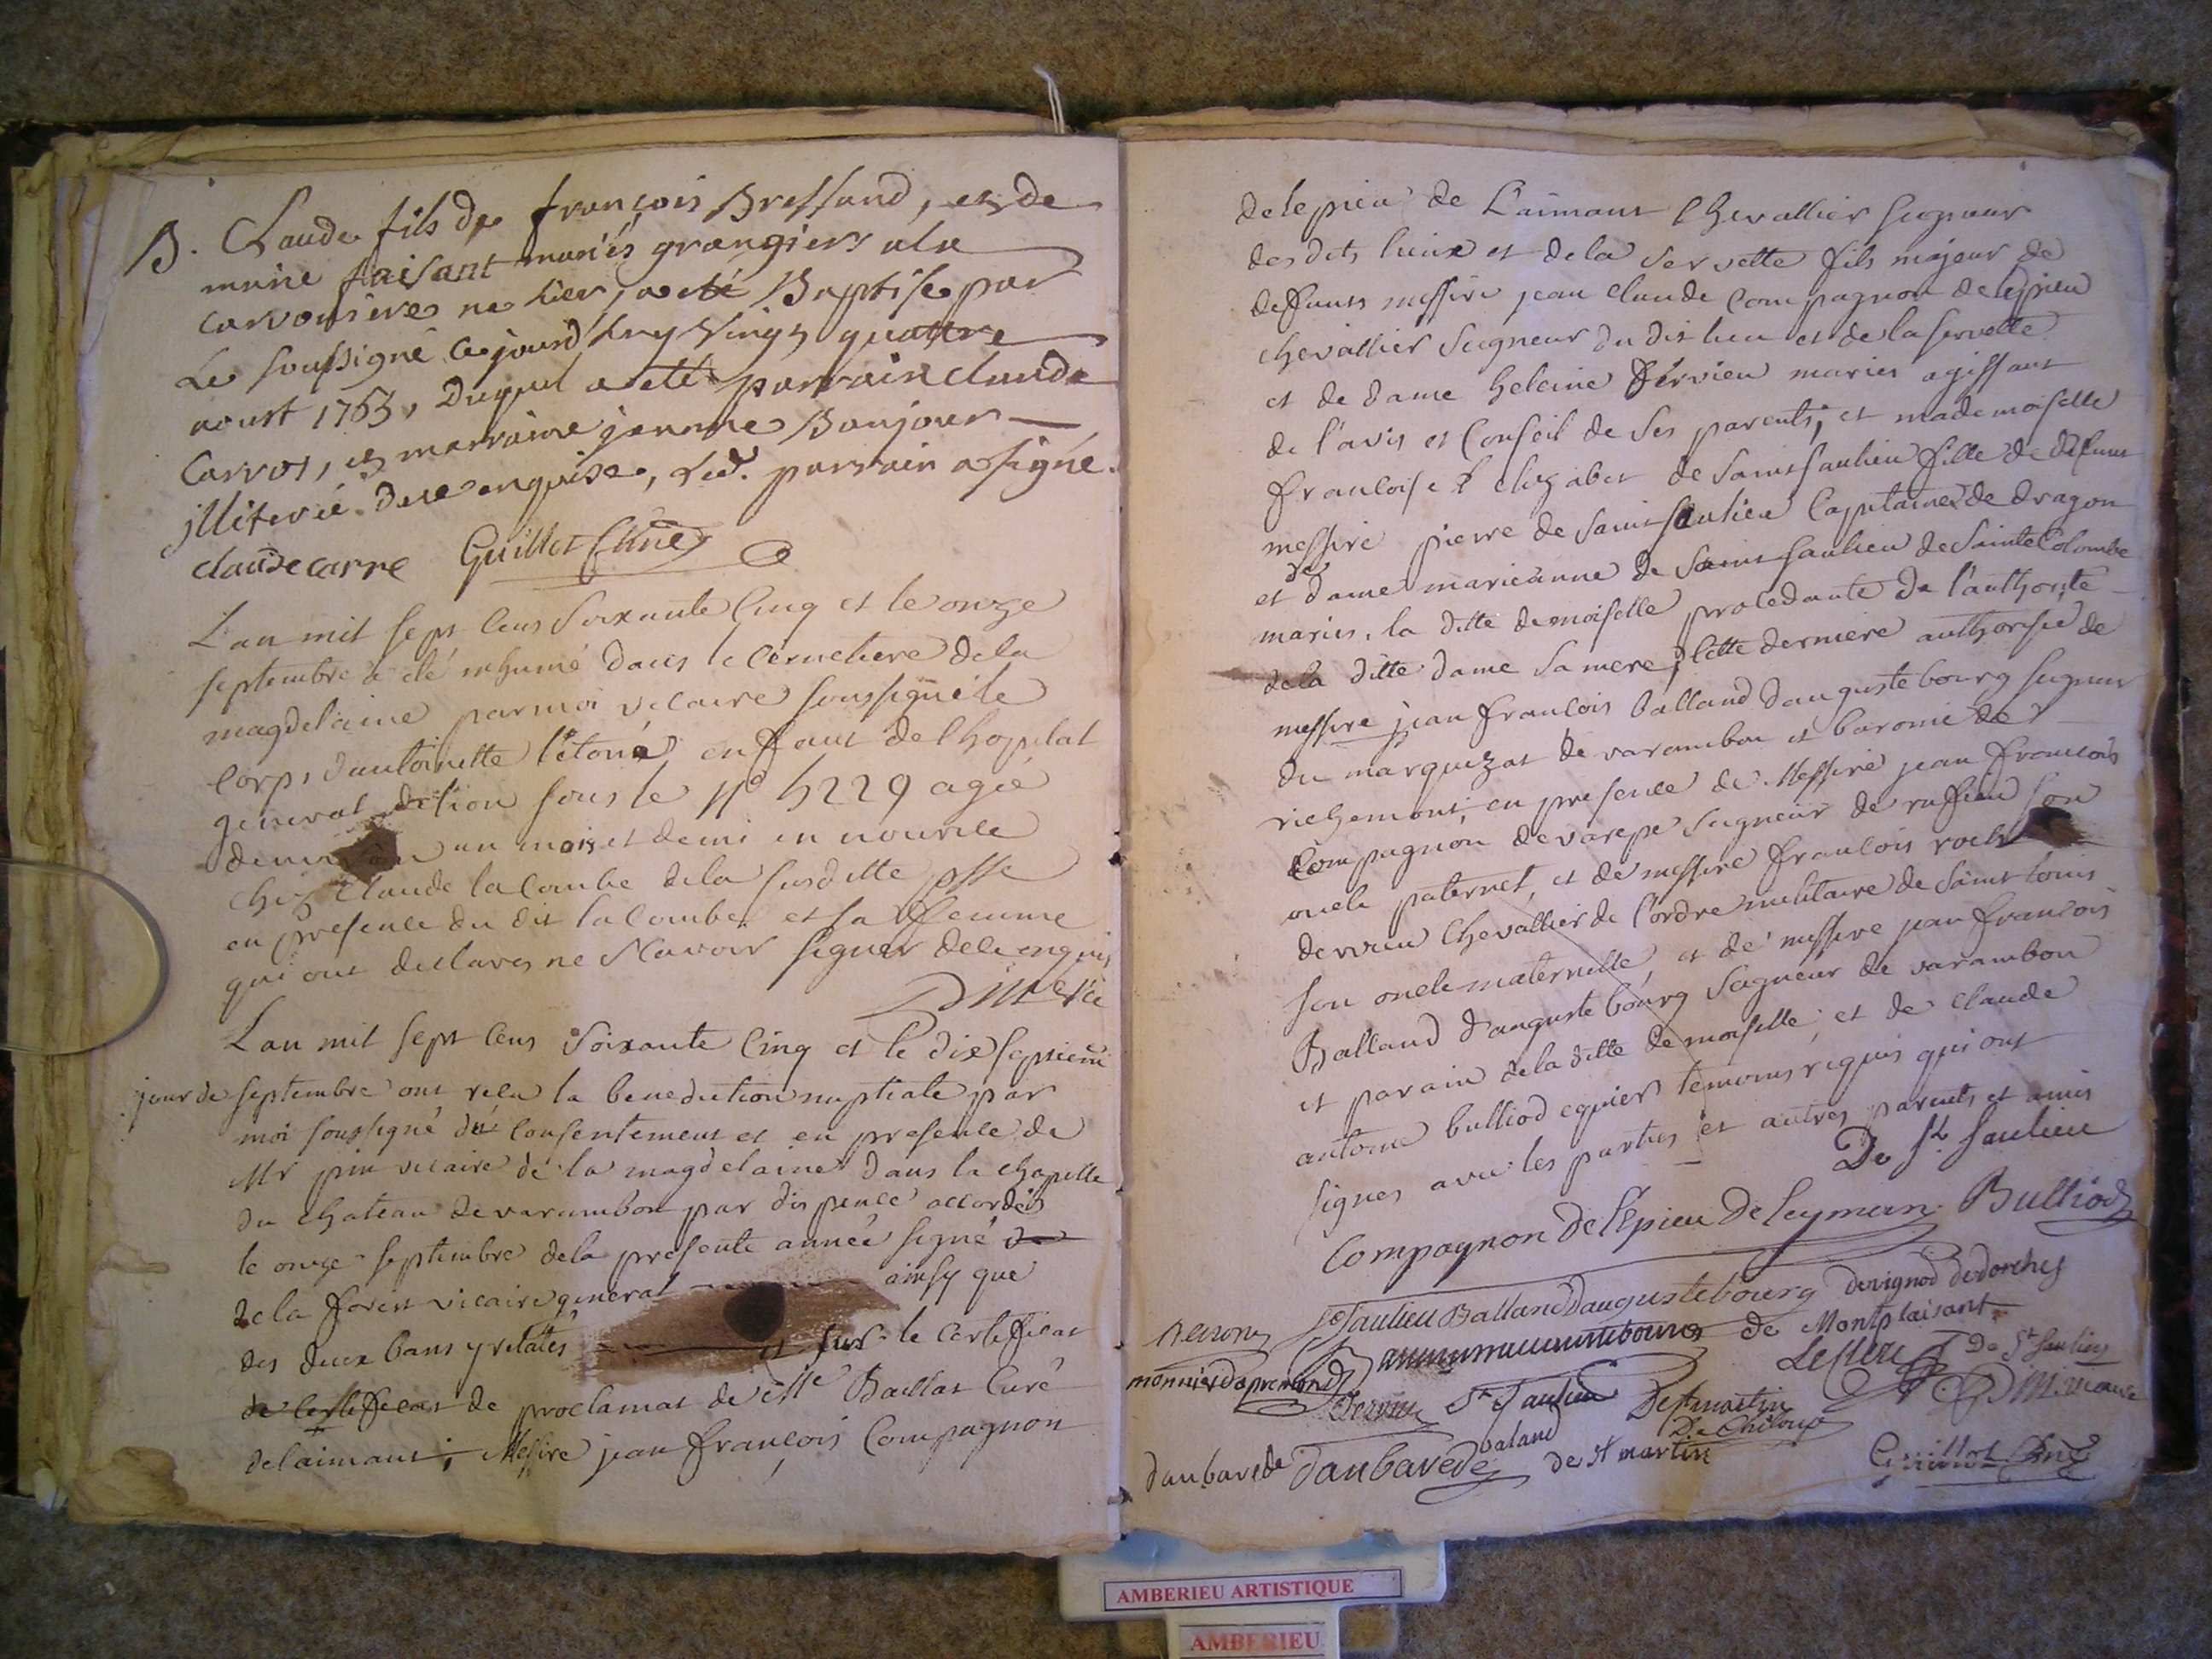 B. Claude fils de françois Bressand, et de
marie faisant mariés grangiers ala
carvonsiere ne hier, a eté Baptise par
Le soussigné ce jourd'huy vingt quattre
aoust 1765, Duquel a eté parrain claude
Carrot, et marraine jeanne Boujour
illiterée. De ce enquise, Led. parrain a signé.
claude carre Guillot Curé
L'an mil sept cens soixante cinq et le onze
septembre a été inhumé dans le cimetiere dela
magdelaine par moi vicaire soussigné le
corps d'antoinette l'étoné enfant de lhopital
general de lion sous le no 5229 agée
un mois et demi en nourice
chez Claude lacombe dela susditte psse
en presence du dit lacombe et sa femme
qui ont declares ne scavoir signer de ce enquis
L'an mil sept cens soixante cinq et le dix septieme
jour de septembre ont recu la benediction nuptiale par
moi soussigné du consentement et en presence de
Mr pin vicaire de la magdelaine dans la chapelle
du chateau de varambon par dispence accordée
le onze septembre dela presente année signé de
de la forest vicaire general ainsy que
des deux bans y relatés et sur le certificat
de certificat de proclamat de Baillat Curé
delaimant; Messire jean françois Compagnon
de lepieu de Laimant Chevallier seigneur
des dits lieux et de la servette fils majeur de
defunts messire jean claude compagnon de lepieu
chevallier seigneur du dit lieu et de la servette
et de dame heleine dervieu maries agissant
de l'avis et conseil de ses parents; et mademoiselle
françoise elizabet de saint saulieu fille de defunt
messire pierre de saint saulieu capitaine de dragon
et de dame marieanne de saint saulieu de sainte Colombe
maries, la ditte demoiselle procedante de l'authorité
dela ditte dame sa mere, cette derniere authorisée de
messire jean françois balland d'augustebourg seigneur
du marquizat de varambon et baronie de
richemont, en presence de Messire jean françois
Compagnon de varepe seigneur de ruffieu son
oncle paternel, et de messire françois roch
dervieu chevallier de l'ordre militaire de saint louis
son oncle maternelle, et de messire jean françois
Balland d'augustebourg seigneur de varambon
et parain dela ditte demoiselle et de claude
antoine bulliod equier temoins requis qui ont
signes avec les parties et autres parents et amis
De St. Saulieu
Compagnon De l'Epieu De leyman Bulliod
St Saulieu Balland daugustebourg devignod dedorches
de Montplaisant
monnier dapremond Leclerc De St Saulieu
Dervieu St Saulieu De st martin
De Chiloup
daubarede daubarede baland de st martin Guillot Curé
AMBERIEU ARTISTIQUE
AMBERIEU